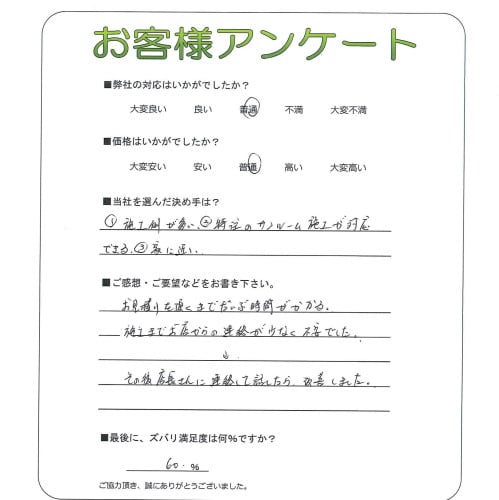 お客様アンケート
■弊社の対応はいかがでしたか？
大変良い 良い 普通 不満 大変不満
■価格はいかがでしたか？
大変安い 安い 普通 高い 大変高い
■当社を選んだ決め手は？
①施工例が多い、②特注のサンルーム施工が対応
できる、③家に近い、
■ご感想・ご要望などをお書き下さい。
お見積りを頂くまでだいぶ時間がかかる。
施工までお店からの連絡が少なく不安でした。
↓
その後店長さんに連絡して話したら、改善しました。
■最後に、ズバリ満足度は何％ですか？
60.％
ご協力頂き、誠にありがとうございました。